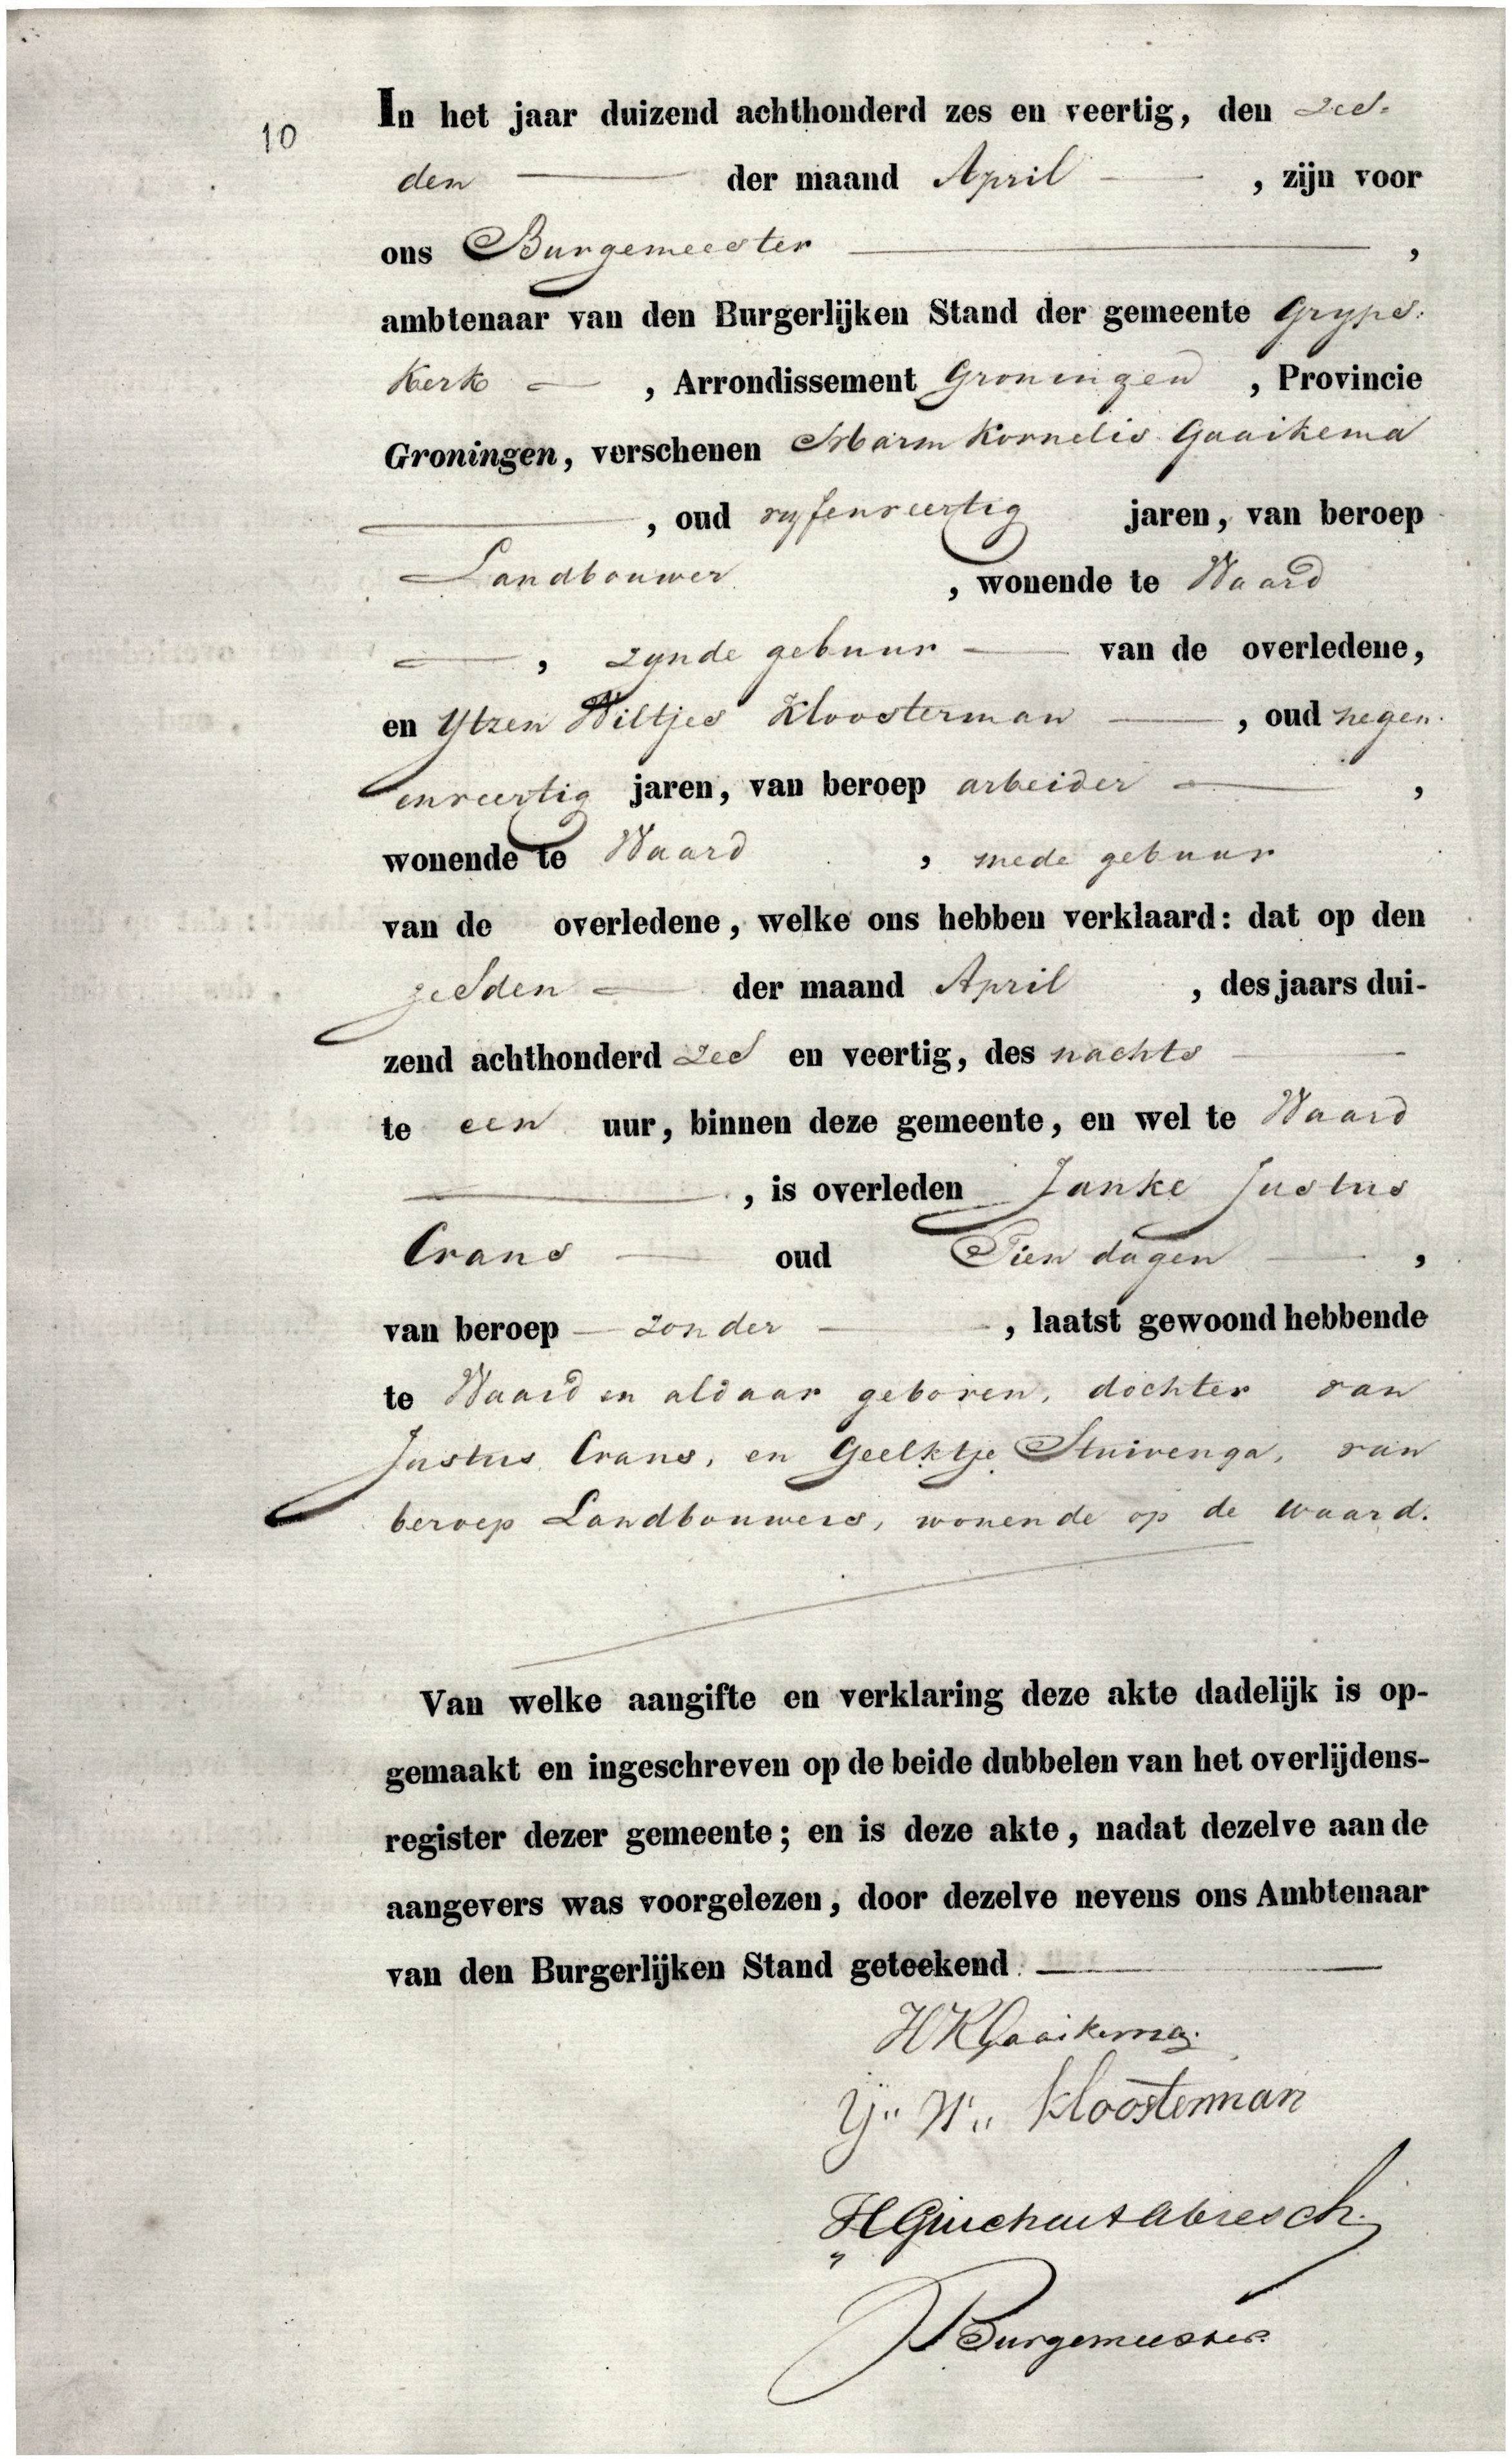 10
In het jaar duizend achthonderd zes en veertig, den zes-
den der maand April, zijn voor
ons Burgemeester,
ambtenaar van den Burgerlijken Stand der gemeente Gryps-
kerk, Arrondissement Groningen, Provincie
Groningen, verschenen Harm Kornelis Gaaikema
, oud vyfenveertig jaren, van beroep
Landbouwer, wonende te Waard
, zynde gebuur van de overledene,
en Ytzen Wiltjes Kloosterman, oud negen-
enveertig jaren, van beroep arbeider,
wonende te Waard, mede gebuur
van de overledene, welke ons hebben verklaard: dat op den
zesden der maand April, des jaars dui-
zend achthonderd zes en veertig, des nachts
te een uur, binnen deze gemeente, en wel te Waard
, is overleden Janke Justus
Crans oud Tien dagen,
van beroep zonder, laatst gewoond hebbende
te Waard en aldaar geboren, dochter van
Justus Crans, en Geelktje Stuivenga, van
beroep Landbouwers, wonende op de Waard.
Van welke aangifte en verklaring deze akte dadelijk is op-
gemaakt en ingeschreven op de beide dubbelen van het overlijdens-
register dezer gemeente; en is deze akte, nadat dezelve aan de
aangevers was voorgelezen, door dezelve nevens ons Ambtenaar
van den Burgerlijken Stand geteekend.
H K Gaaikema.
Y" W" Kloosterman
H Guichart Abresch.
Burgemeester